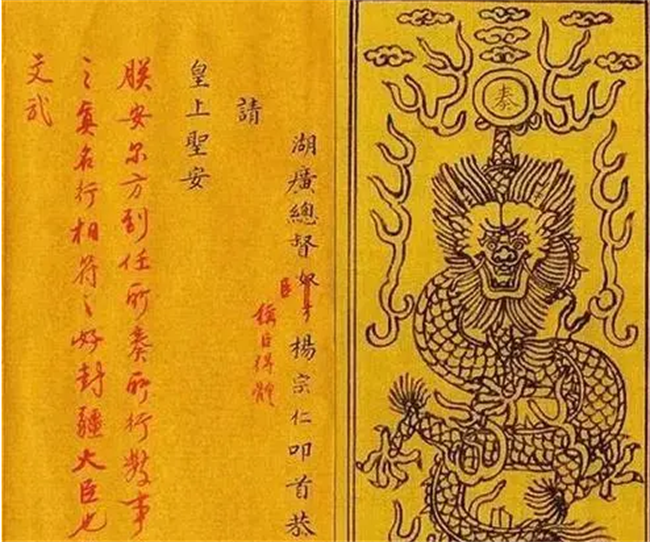 奏
湖廣總督奴才楊宗仁叩首恭
臣
稱臣得體
請
皇上聖安
朕安尔方到任所奏所行数事
之真名行相符之好封疆大臣也
文武